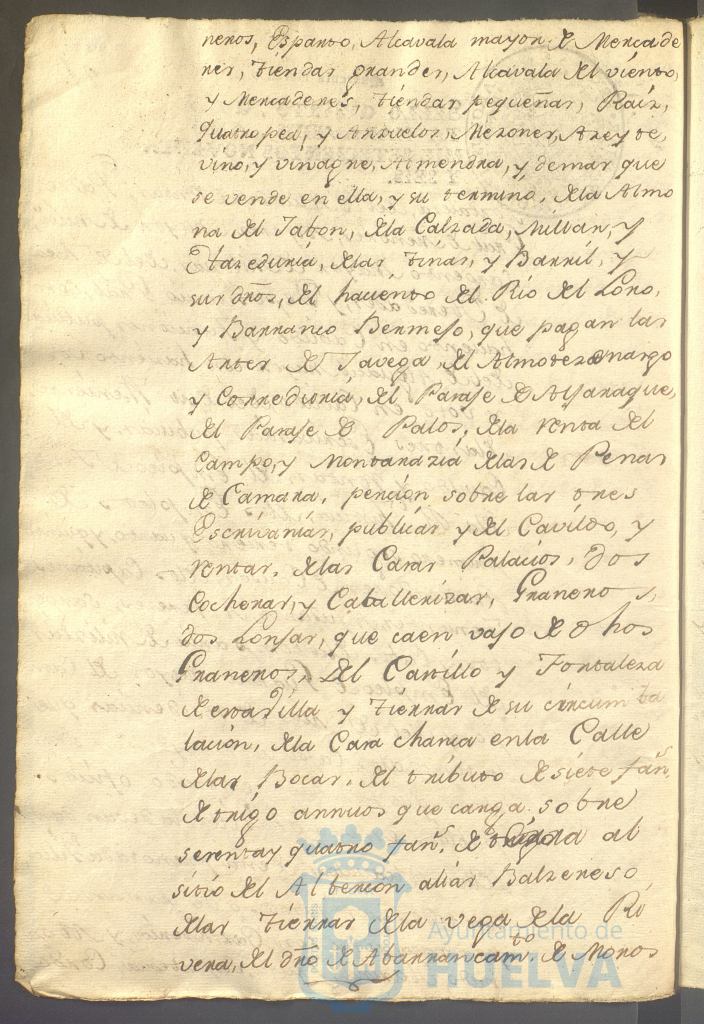 neros, Esparto, Alcavala mayor de Mercade
res, tiendas grandes, Alcavala del viento,
y Mercaderes, tiendas pequeñas, Raiz,
quatropea, y Anzuelos, Mezones, Azeyte,
vino, y vinagre, Almendra, y demas que
se vende en ella, y su termino, de la Almo
na del Jabon, de la Calzada, Millan, y
de las tinas, y Barril, y
sus dros, del haciento del Rio del Loro,
y Barranco Bermejo, que pagan las
Artes de Javega, del Almotezenazgo
y Corredoria, del Pasaje de Aljaraque,
del Pasaje de Palos, de la renta del
Campo, y Montarazia de las de Penas
de Camara, pencion sobre las tres
Escrivanias, publicas y del Cavildo, y
rentas, de las Casas Palacios, dos
Cocheras, y Cavallerizas, Graneros,
dos Lonjas, que caen vajo de dhos
Graneros, del Castillo y Fortaleza
de esta Villa y tierras de su circumba
lacion, de la Casa chanca en la Calle
de las Bocas, del tributo de siete fans.
de trigo annuos que carga sobre
setenta y quatro fans. de tierra al
sitio del Albercon alias Balzeroso
de las tierras de la vega de la Ri
vera, del dro de Abarrancamto. de Moros
Ayuntamiento de
HUELVA